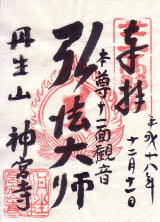 奉拝
平成十八年
十二月十一日
本尊十一面観音
弘法大師
丹生山 神宮寺